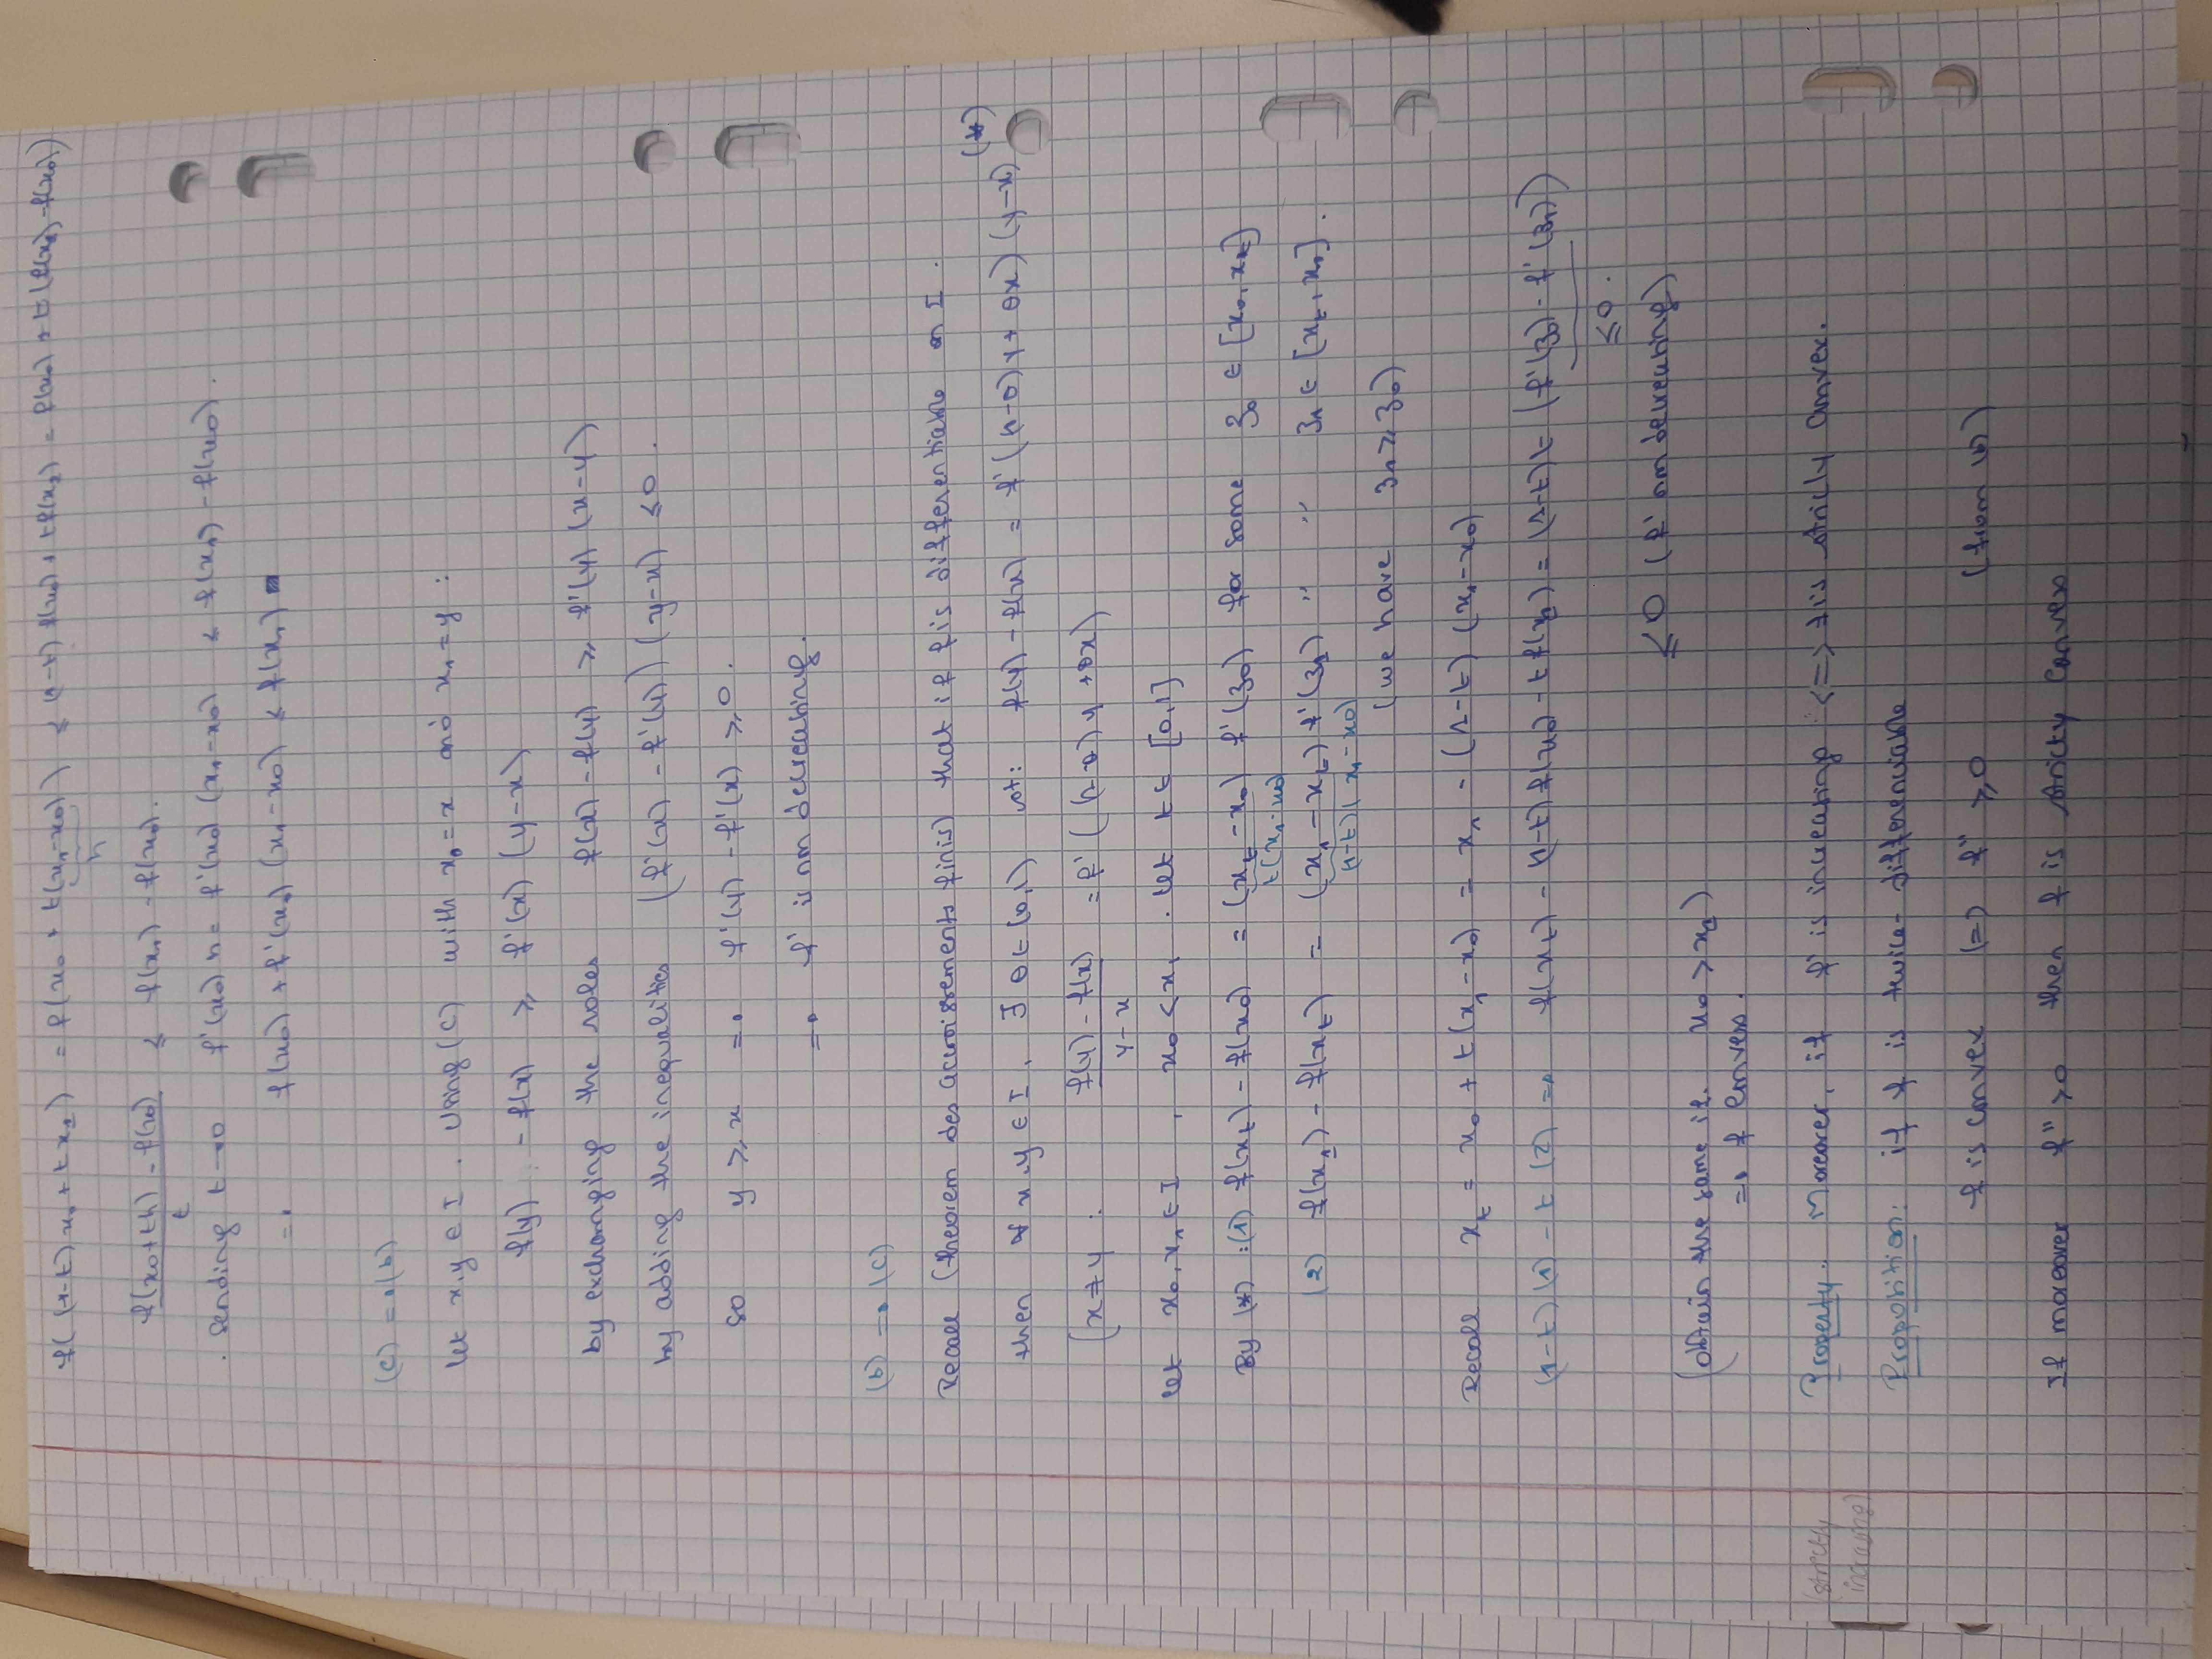 f((1-t)x₀ + tx₁) = f(x₀ + t(x₁-x₀)) ≤ (1-t) f(x₀) + tf(x₁) = f(x₀) + t(f(x₁) - f(x₀))
h
f(x₀+th) - f(x₀) / t ≤ f(x₁) - f(x₀).
. sending t → 0 f'(x₀) h = f'(x₀) (x₁-x₀) ≤ f(x₁) - f(x₀).
=> f(x₀) + f'(x₀) (x₁-x₀) ≤ f(x₁) ■
(c) => (b)
let x,y ∈ I . Using (c) with x₀ = x and x₁ = y :
f(y) - f(x) ≥ f'(x) (y-x)
by exchanging the roles f(x) - f(y) ≥ f'(y) (x-y)
by adding the inequalities (f'(x) - f'(y)) (y-x) ≤ 0 .
so y ≥ x => f'(y) - f'(x) ≥ 0 .
=> f' is non decreasing.
(b) => (c)
Recall (theorem des accroissements finis) that if f is differentiable on I .
then ∀ x,y ∈ I, ∃ θ ∈ (0,1) st: f(y) - f(x) = f'((1-θ)y + θx) (y-x) (*)
(x ≠ y : f(y) - f(x) / y - x = f'((1-θ)y + θx)
let x₀, x₁ ∈ I , x₀ < x₁ . let t ∈ [0,1]
By (*) : (1) f(xₜ) - f(x₀) = (xₜ - x₀) f'(z₀) for some z₀ ∈ [x₀, xₜ]
t(x₁-x₀)
(2) f(x₁) - f(xₜ) = (x₁ - xₜ) f'(z₁) " " z₁ ∈ [xₜ, x₁] .
(1-t)(x₁-x₀)
(we have z₁ ≥ z₀)
Recall xₜ = x₀ + t(x₁-x₀) = x₁ - (1-t) (x₁-x₀)
(1-t)(1) - t (2) => f(xₜ) - (1-t) f(x₀) - t f(x₁) = (1-t)t (f'(z₀) - f'(z₁))
≤ 0 .
≤ 0 (f' non decreasing)
(obtain the same if. x₀ > x₁)
=> f convex.
(strictly increasing)
Property. Moreover, if f' is increasing <=> f is stricly convex.
Proposition: if f is twice-differenciable
f is convex (=) f'' ≥ 0 (from (b))
If moreover f'' > 0 then f is stricty convex